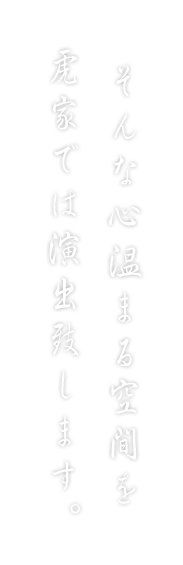 そんな心温まる空間を
虎家では演出致します。